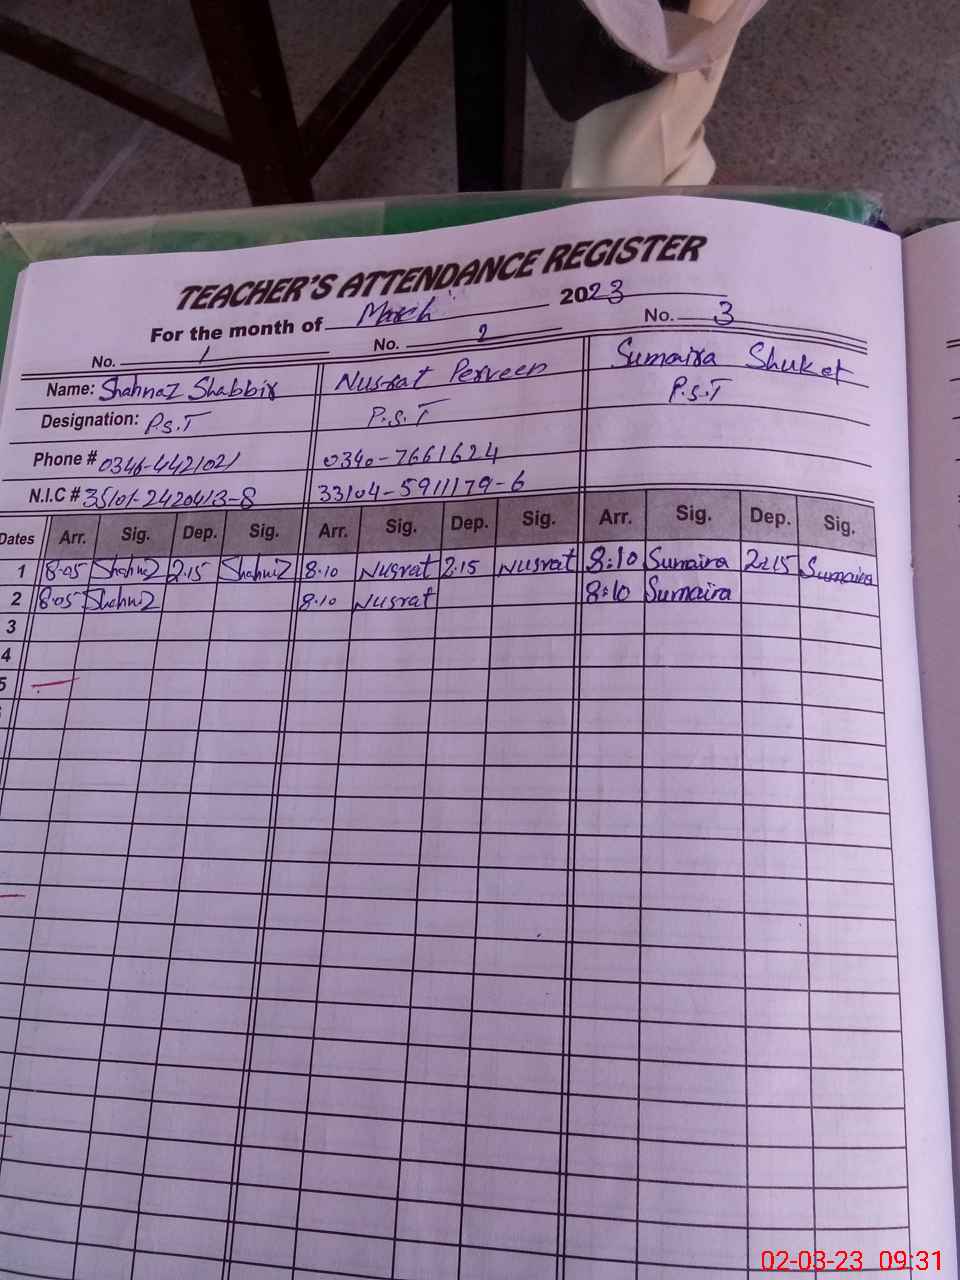 TEACHER'S ATTENDANCE REGISTER
For the month of March 2023
No. 1 No. 2 No. 3
Name: Shahnaz Shabbir Nusrat Perveen Sumaira Shuket
Designation: P.S.T P.S.T P.S.T
Phone # 0346-4421021 0340-7661624
N.I.C # 35101-2420413-8 33104-5911179-6
Dates Arr. Sig. Dep. Sig. Arr. Sig. Dep. Sig. Arr. Sig. Dep. Sig.
1 8-05 Shahnaz 2.15 Shahnaz 8.10 Nusrat 2.15 Nusrat 8:10 Sumaira 2:15 Sumaira
2 8.05 Shahnaz 8.10 Nusrat 8:10 Sumaira
3
4
5
02-03-23 09:31